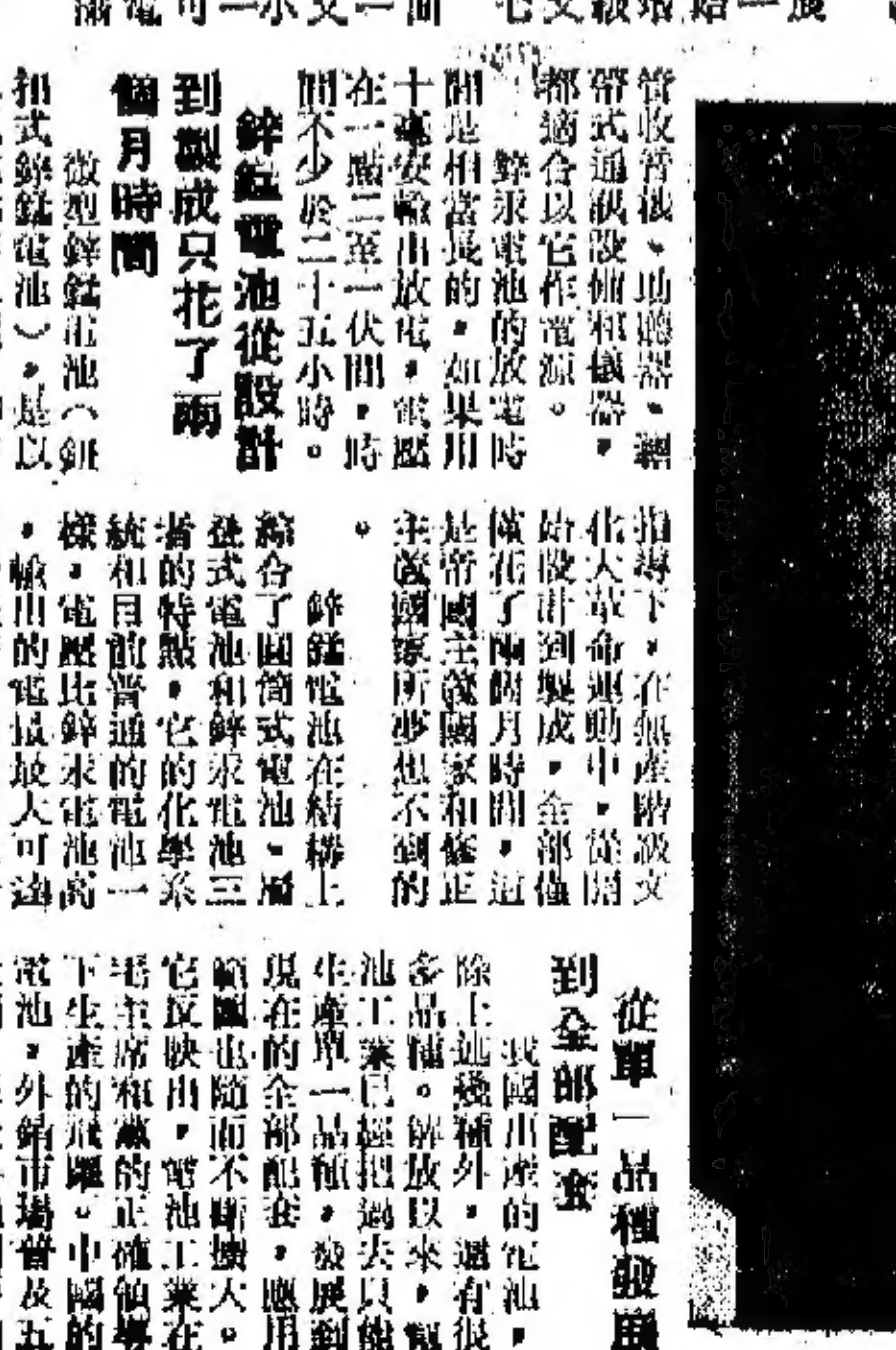 管收音機、助聽器、
帶式通訊設備和儀器，
都適合以它作電源。
鋅汞電池的放電時
間是相當長的，如果用
十毫安輸出放電，電壓
在一點二至一伏間，時
間不少於二十五小時。
鋅錳電池從設計
到製成只花了兩
個月時間
微型鋅錳電池（鈕
扣式鋅錳電池），是以
指導下，在無產階級文
化大革命運動中，從開
始設計到製成，全部僅
僅花了兩個月時間，這
是帝國主義國家和修正
主義國家所夢想不到的
。
鋅錳電池在結構上
綜合了圓筒式電池、層
疊式電池和鋅汞電池三
者的特點，它的化學系
統和目前普通的電池一
樣，電壓比鋅汞電池高
，輸出的電量最大可達
從單一品種發展
到全部配套
我國出產的電池，
除上述幾種外，還有很
多品種。解放以來，電
池工業已經把過去只能
生產單一品種，發展到
現在的全部配套，應用
範圍也隨而不斷擴大。
它反映出，電池工業在
毛主席和黨的正確領導
下生產的飛躍。中國的
電池，外銷市場普及五